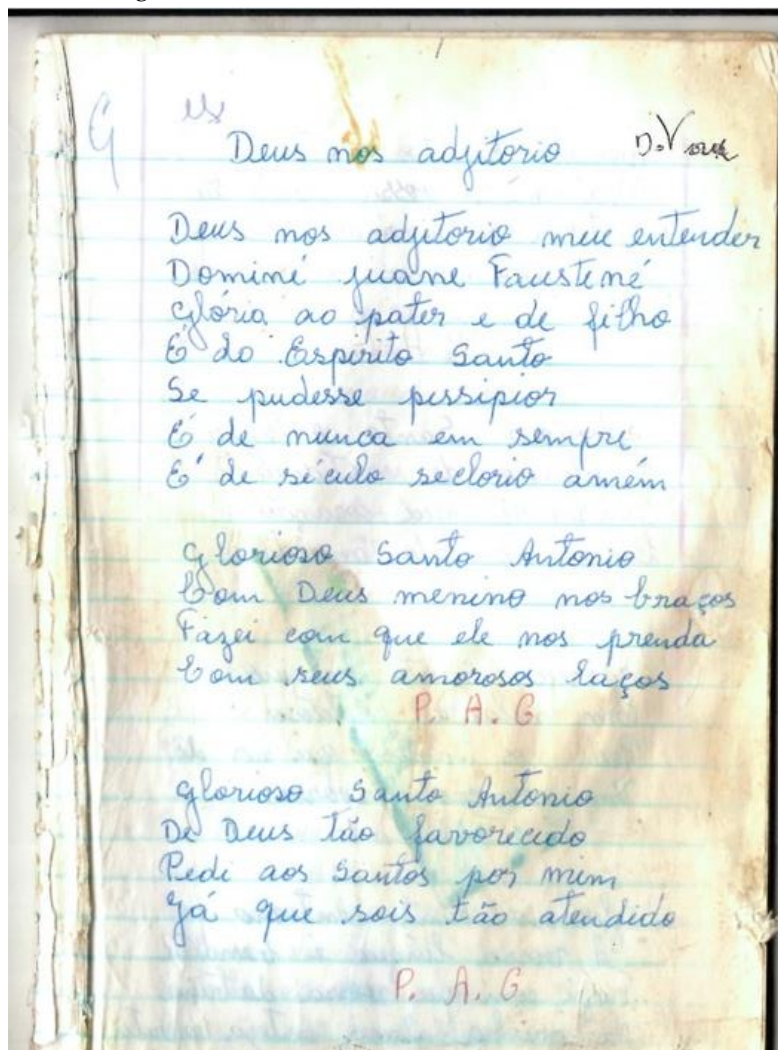 Deus nos adjitorio
Deus nos adjitorio meu entender
Dominé juane Faustené
Glória ao pater e de filho
E do Espirito Santo
Se pudesse pissipior
É de nunca em sempre
É de século seclorio amém
Glorioso Santo Antonio
Com Deus menino nos braços
Fazei com que ele nos prenda
Com seus amorosos laços
P. A. G
Glorioso Santo Antonio
De Deus tão favorecido
Pedi aos Santos por mim
Já que sois tão atendido
P. A. G